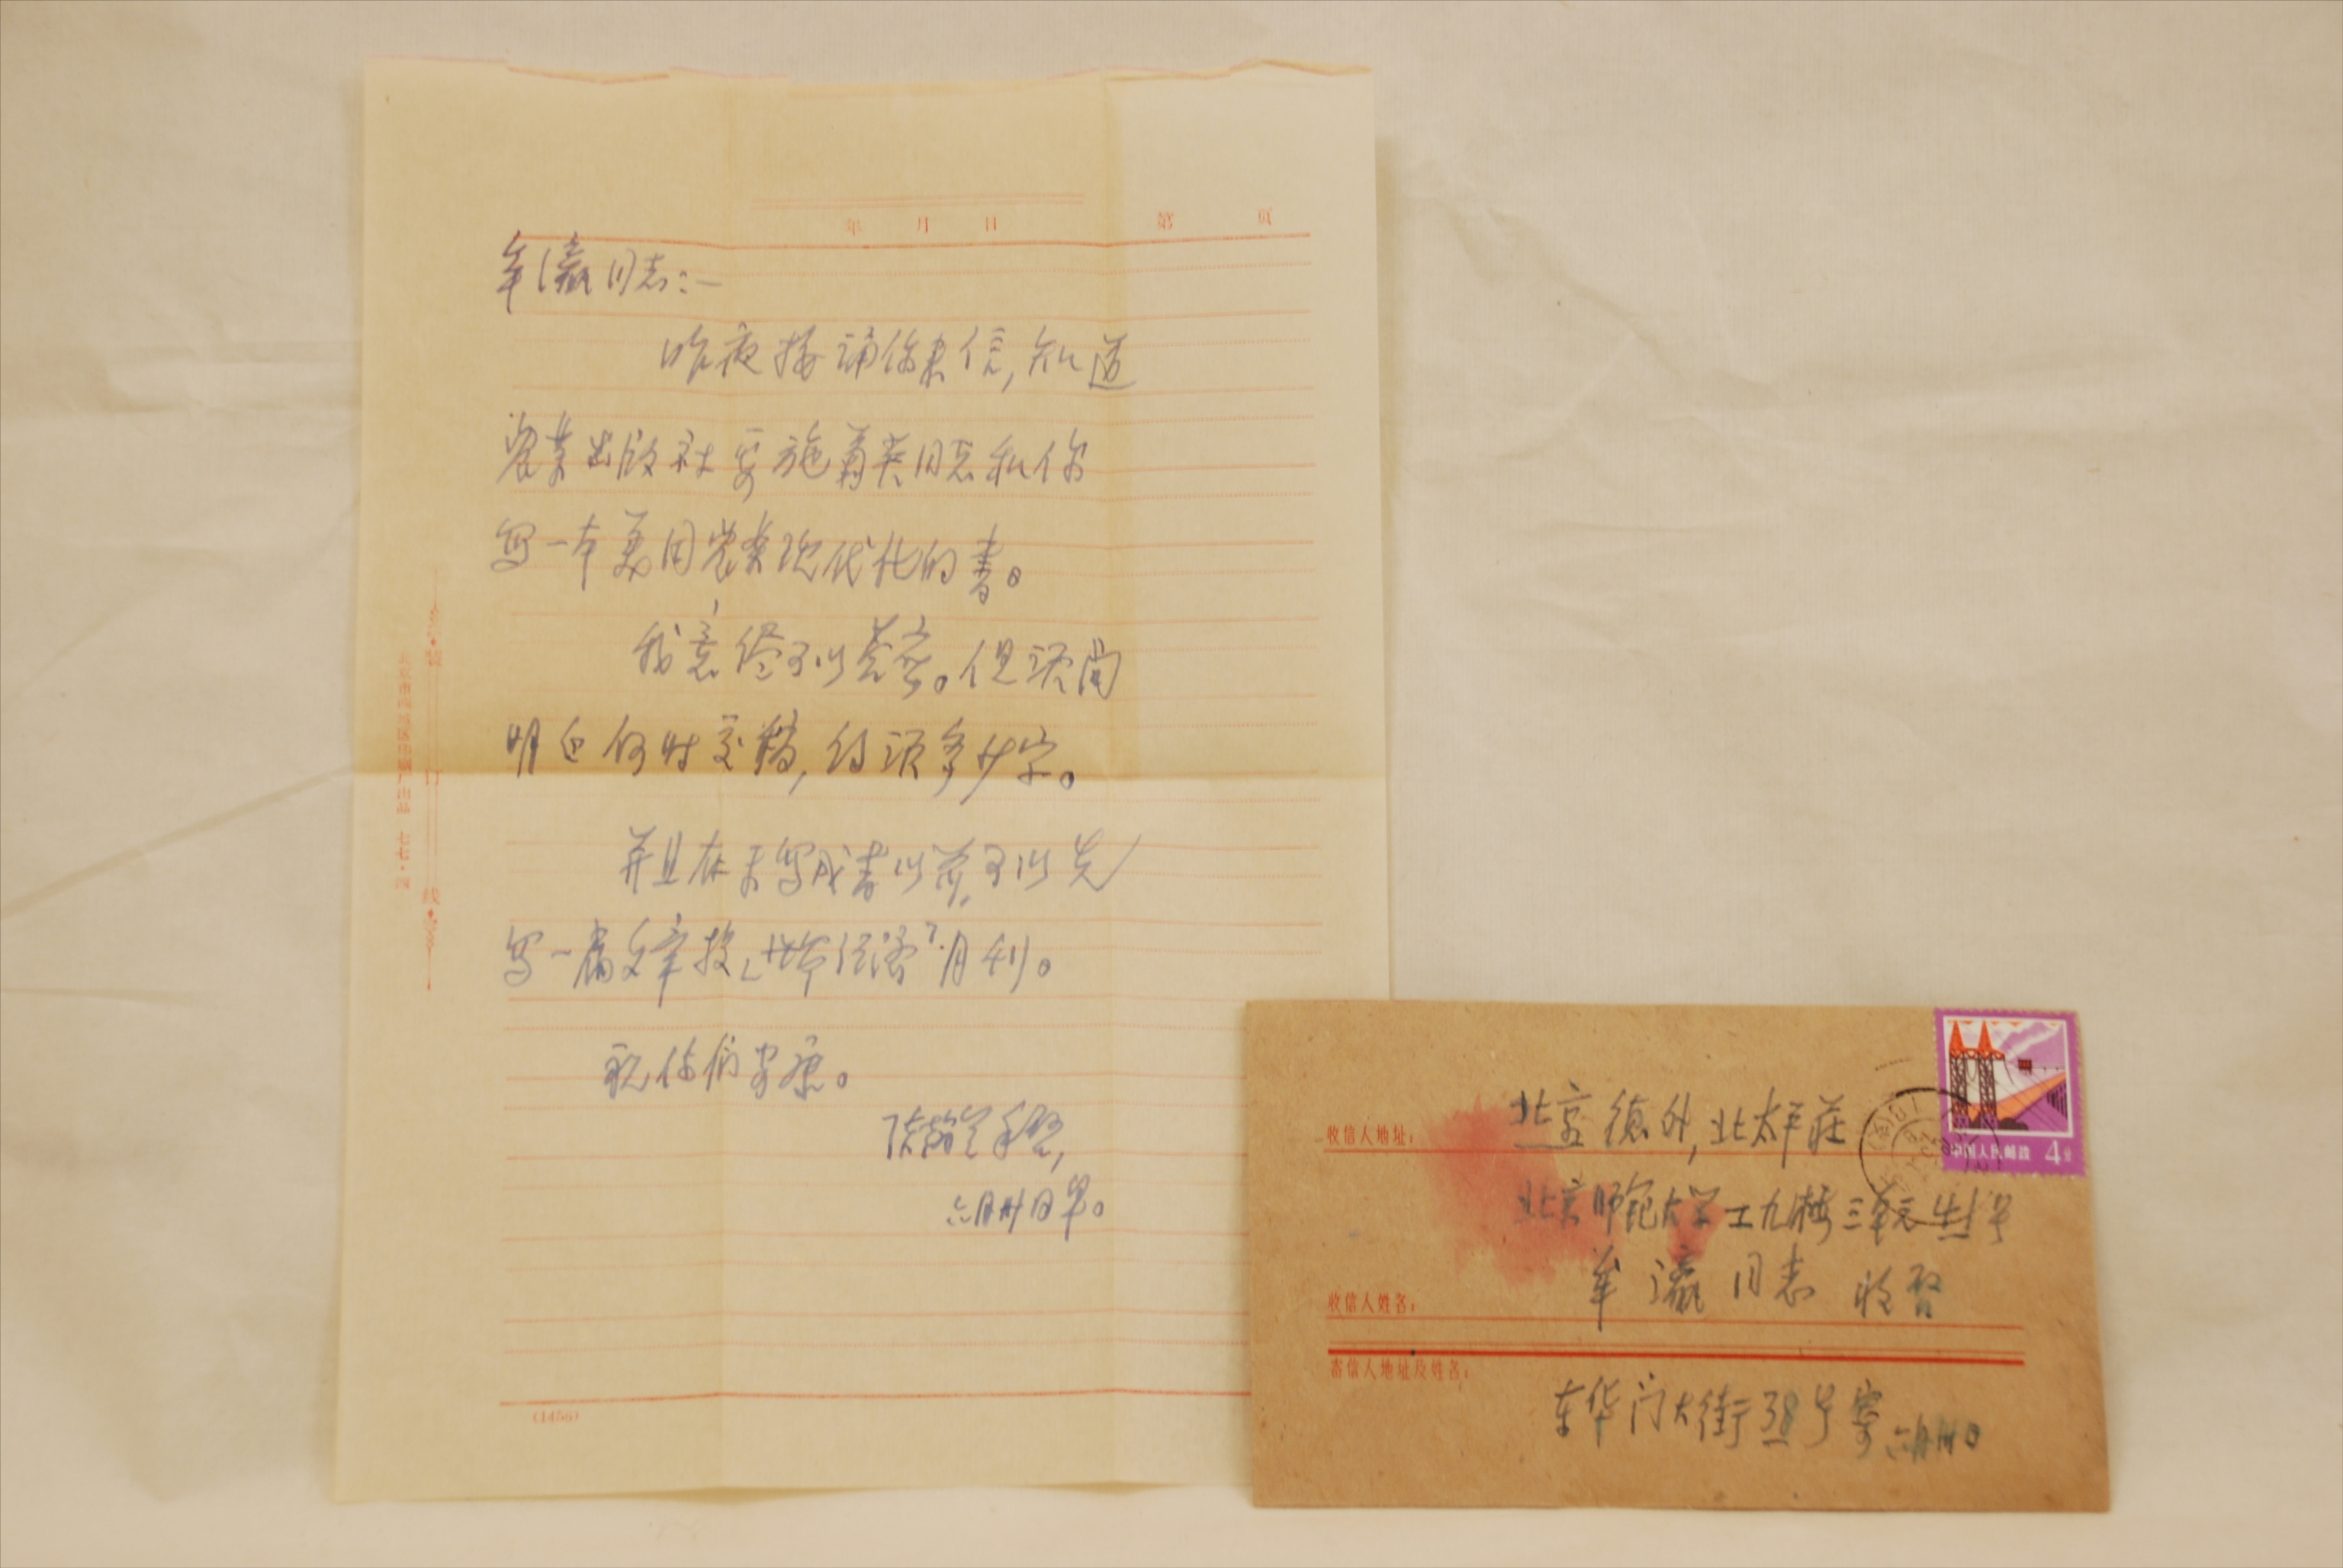 年 月 日 第 页
牟瀛同志：—
昨夜接诵你来信，知道
农业出版社要施菊英同志和你
写一本美国农业现代化的书。
我意你可以答应。但须问
明白何时交稿，约须多少字。
并且在未写成书以前，可以先
写一篇文章投「世界经济」月刊。
祝你们安康。
手启，
六月卅日早。
装 订 线
北京市西城区印刷厂出品 七七·四
(1456)
中国人民邮政 4分
收信人地址：
北京德外，北太平莊
北京师范大学工九楼三单元
收信人姓名：
牟瀛同志 收启
寄信人地址及姓名：
东华门大街38号寄 六月卅日